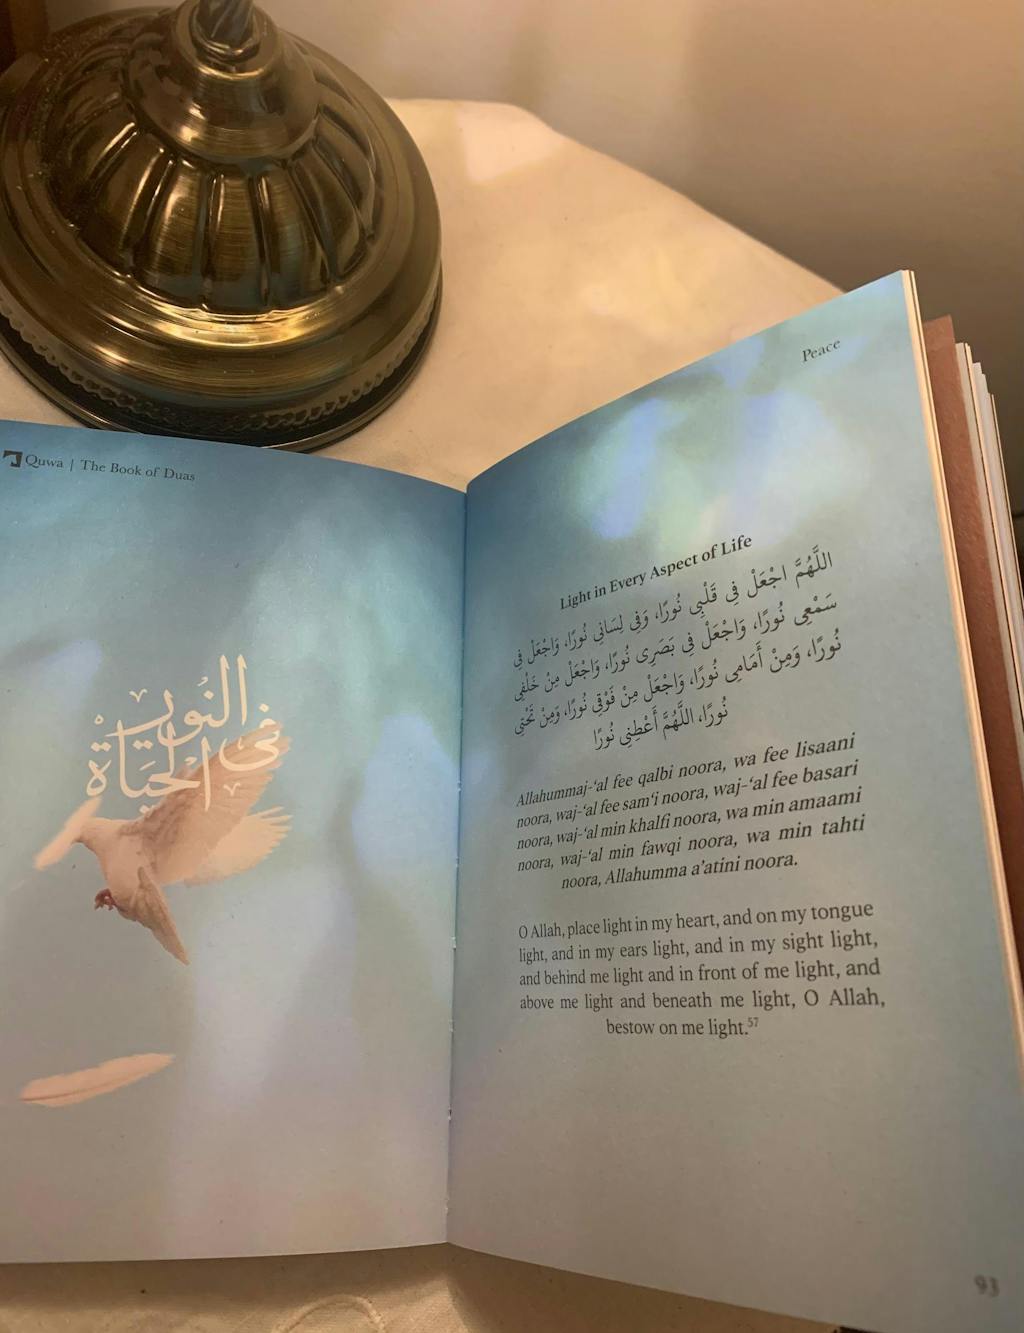 Quwa | The Book of Duas
النور
في
الحياة
Peace
Light in Every Aspect of Life
اللَّهُمَّ اجْعَلْ فِي قَلْبِي نُورًا، وَفِي لِسَانِي نُورًا، وَاجْعَلْ فِي
سَمْعِي نُورًا، وَاجْعَلْ فِي بَصَرِي نُورًا، وَاجْعَلْ مِنْ خَلْفِي
نُورًا، وَمِنْ أَمَامِي نُورًا، وَاجْعَلْ مِنْ فَوْقِي نُورًا، وَمِنْ تَحْتِي
نُورًا، اللَّهُمَّ أَعْطِنِي نُورًا
Allahummaj-‘al fee qalbi noora, wa fee lisaani
noora, waj-‘al fee sam‘i noora, waj-‘al fee basari
noora, waj-‘al min khalfi noora, wa min amaami
noora, waj-‘al min fawqi noora, wa min tahti
noora, Allahumma a’atini noora.
O Allah, place light in my heart, and on my tongue
light, and in my ears light, and in my sight light,
and behind me light and in front of me light, and
above me light and beneath me light, O Allah,
bestow on me light.⁵⁷
93